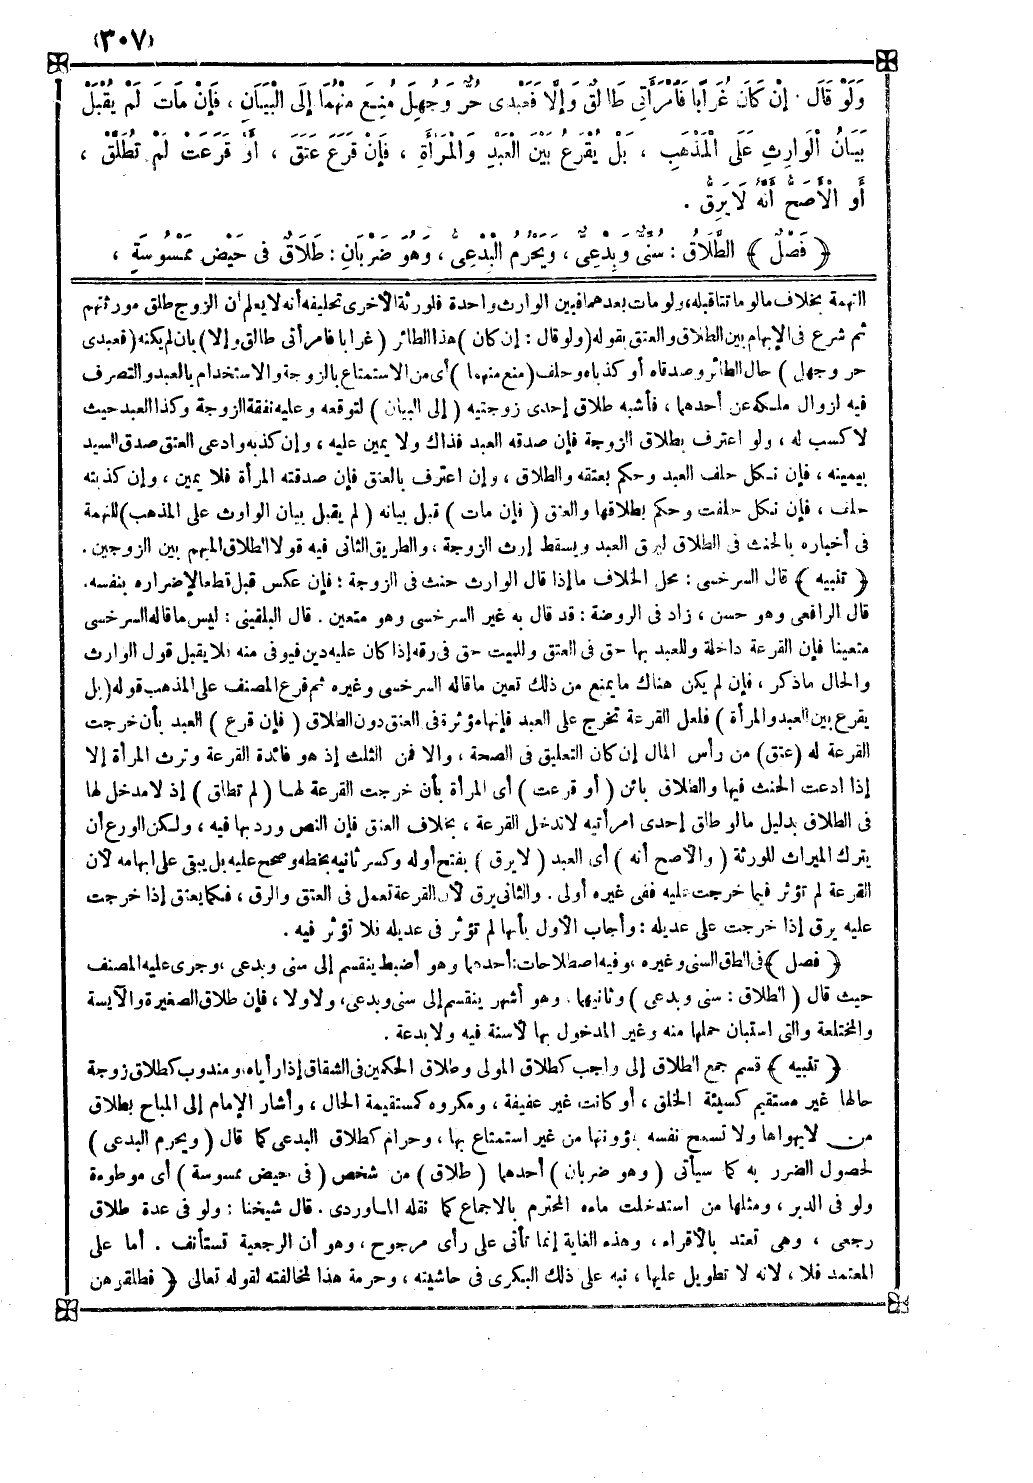 (٣٠٧)
وَلَوْ قَالَ : إِنْ كَانَ غُرَابًا فَامْرَأَتِى طَالِقٌ وَإِلَّا فَعَبْدِى حُرٌّ وَجُهِلَ مُنِعَ مِنْهُمَا إِلَى الْبَيَانِ ، فَإِنْ مَاتَ لَمْ يُقْبَلْ
بَيَانُ الْوَارِثِ عَلَى الْمَذْهَبِ ، بَلْ يُقْرَعُ بَيْنَ الْعَبْدِ وَالْمَرْأَةِ ، فَإِنْ قَرَعَ عَتَقَ ، أَوْ قَرَعَتْ لَمْ تُطَلَّقْ ،
أَو الْأَصَحُّ أَنَّهُ لَا يَرِقُّ .
﴿ فَصْلٌ ﴾ الطَّلَاقُ : سُنِّىٌّ وَبِدْعِىٌّ ، وَيَحْرُمُ الْبِدْعِىُّ ، وَهُوَ ضَرْبَانِ : طَلَاقٌ فِى حَيْضِ مَمْسُوسَةٍ ،
التهمة بخلاف مالو ماتتا قبله ، ولو مات بعدهما فبين الوارث واحدة فلورثة الأخرى تحليفه أنه لا يعلم أن الزوج طلق مورثتهم
ثم شرع فى الإبهام بين الطلاق والعتق بقوله (ولو قال : إن كان ) هذا الطائر ( غرابا فامرأتى طالق وإلا) بان لم يكنه (فعبدى
حر وجهل ) حال الطائر وصدقاه أو كذباه وحلف (منع منهما ) أى من الاستمتاع بالزوجة والاستخدام بالعبد والتصرف
فيه لزوال ملكه عن أحدهما ، فأشبه طلاق إحدى زوجتيه ( إلى البيان ) لتوقعه وعليه نفقة الزوجة وكذا العبد حيث
لا كسب له ، ولو اعترف بطلاق الزوجة فإن صدقه العبد فذاك ولا يمين عليه ، وإن كذبه وادعى العتق صدق السيد
بيمينه ، فإن نكل حلف العبد وحكم بعتقه والطلاق ، وإن اعترف بالعتق فإن صدقته المرأة فلا يمين ، وإن كذبته
حلف ، فإن نكل حلفت وحكم بطلاقها والعتق ( فإن مات ) قبل بيانه ( لم يقبل بيان الوارث على المذهب) للتهمة
فى أخباره بالحنث فى الطلاق ليرق العبد ويسقط إرث الزوجة ، والطريق الثانى فيه قولا الطلاق المبهم بين الزوجين .
﴿ تنبيه ﴾ قال السرخسى : محل الخلاف ما إذا قال الوارث حنث فى الزوجة ؛ فإن عكس قبل قطعا لإضراره بنفسه.
قال الرافعى وهو حسن ، زاد فى الروضة : قد قال به غير السرخسى وهو متعين . قال البلقينى : ليس ما قاله السرخسى
متعينا فإن القرعة داخلة وللعبد بها حق فى العتق وللميت حق فى رقه إذا كان عليه دين فيوفى منه فلا يقبل قول الوارث
والحال ماذكر ، فإن لم يكن هناك ما يمنع من ذلك تعين ما قاله السرخسى وغيره ثم فرع المصنف على المذهب قوله (بل
يقرع بين العبد والمرأة ) فلعل القرعة تخرج على العبد فإنها مؤثرة فى العتق دون الطلاق ( فإن قرع ) العبد بأن خرجت
القرعة له (عتق) من رأس المال إن كان التعليق فى الصحة ، والا فمن الثلث إذ هو فائدة القرعة وترث المرأة إلا
إذا ادعت الحنث فيها والطلاق بائن ( أو قرعت ) أى المرأة بأن خرجت القرعة لها ( لم تطلق ) إذ لا مدخل لها
فى الطلاق بدليل مالو طلق إحدى امرأتيه لا تدخل القرعة ، بخلاف العتق فإن النص ورد بها فيه ، ولكن الورع أن
يترك الميراث للورثة ( والأصح أنه ) أى العبد ( لا يرق ) بفتح أوله وكسر ثانيه بخطه وصحح عليه بل يبقى على ابهامه لأن
القرعة لم تؤثر فيما خرجت عليه ففى غيره أولى . والثانى يرق لأن القرعة تعمل فى العتق والرق ، فكما يعتق إذا خرجت
عليه يرق إذا خرجت على عديله : وأجاب الأول بأنها لم تؤثر فى عديله فلا تؤثر فيه .
﴿ فصل ﴾ فى الطلاق السنى وغيره ، وفيه اصطلاحات: أحدهما وهو أضبط ينقسم إلى سنى وبدعى ، وجرى عليه المصنف
حيث قال ( الطلاق : سنى وبدعى ) وثانيهما . وهو أشهر ينقسم إلى سنى وبدعى، ولا ولا ، فإن طلاق الصغيرة والآيسة
والمختلعة والتى استبان حملها منه وغير المدخول بها لا سنة فيه ولا بدعة .
﴿ تنبيه ﴾ قسم جمع الطلاق إلى واجب كطلاق المولى وطلاق الحكمين فى الشقاق إذا رأياه ، ومندوب كطلاق زوجة
حالها غير مستقيم كسيئة الخلق ، أو كانت غير عفيفة ، ومكروه كمستقيمة الحال ، وأشار الإمام إلى المباح بطلاق
من لا يهواها ولا تسمح نفسه بمؤونتها من غير استمتاع بها ، وحرام كطلاق البدعى كما قال ( ويحرم البدعى )
لحصول الضرر به كما سيأتى ( وهو ضربان ) أحدهما ( طلاق ) من شخص ( فى حيض ممسوسة ) أى موطوءة
ولو فى الدبر ، ومثلها من استدخلت ماءه المحترم بالاجماع كما نقله الماوردى . قال شيخنا : ولو فى عدة طلاق
رجعى ، وهى تعتد بالأقراء ، وهذه الغاية إنما تأتى على رأى مرجوح ، وهو أن الرجعية تستأنف . أما على
المعتمد فلا ، لانه لا تطويل عليها ، نبه على ذلك البكرى فى حاشيته ، وحرمة هذا لمخالفته لقوله تعالى ﴿ فطلقوهن